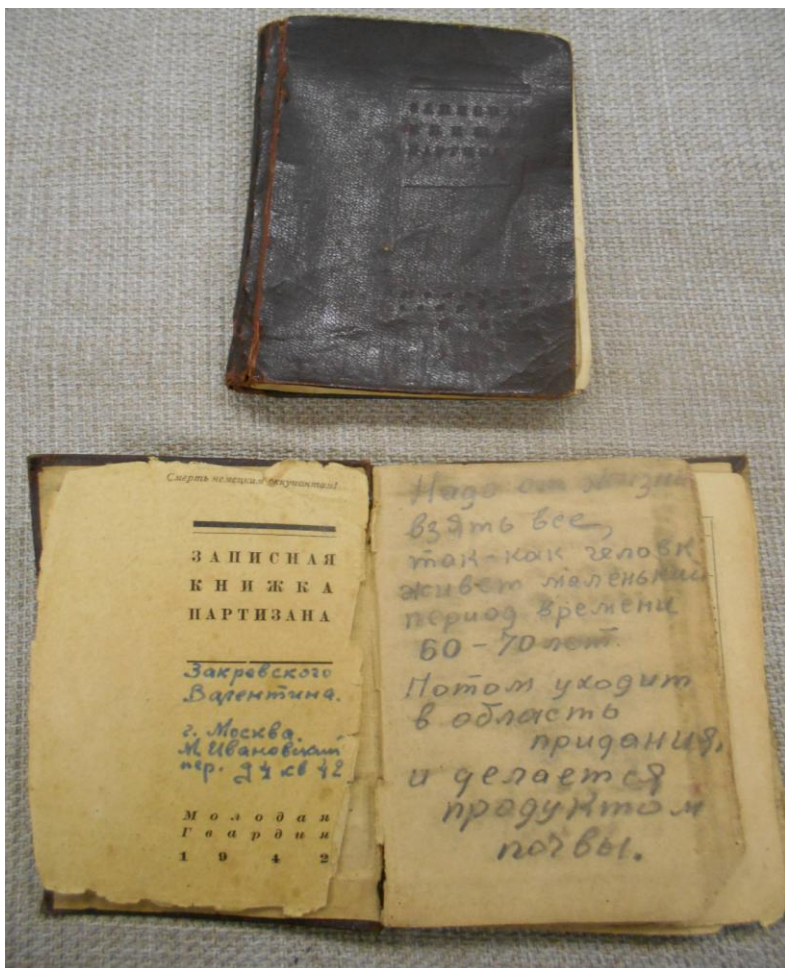 Смерть немецким оккупантам!
ЗАПИСНАЯ
КНИЖКА
ПАРТИЗАНА
Закревского
Валентина.
г. Москва.
М Ивановский
пер. д 4 кв 42
Молодая
Гвардия
1942
Надо от жизни
взять все,
так-как человк
живет маленький
период времени
60-70 лет.
Потом уходит
в область
придания,
и делается
продуктом
почвы.